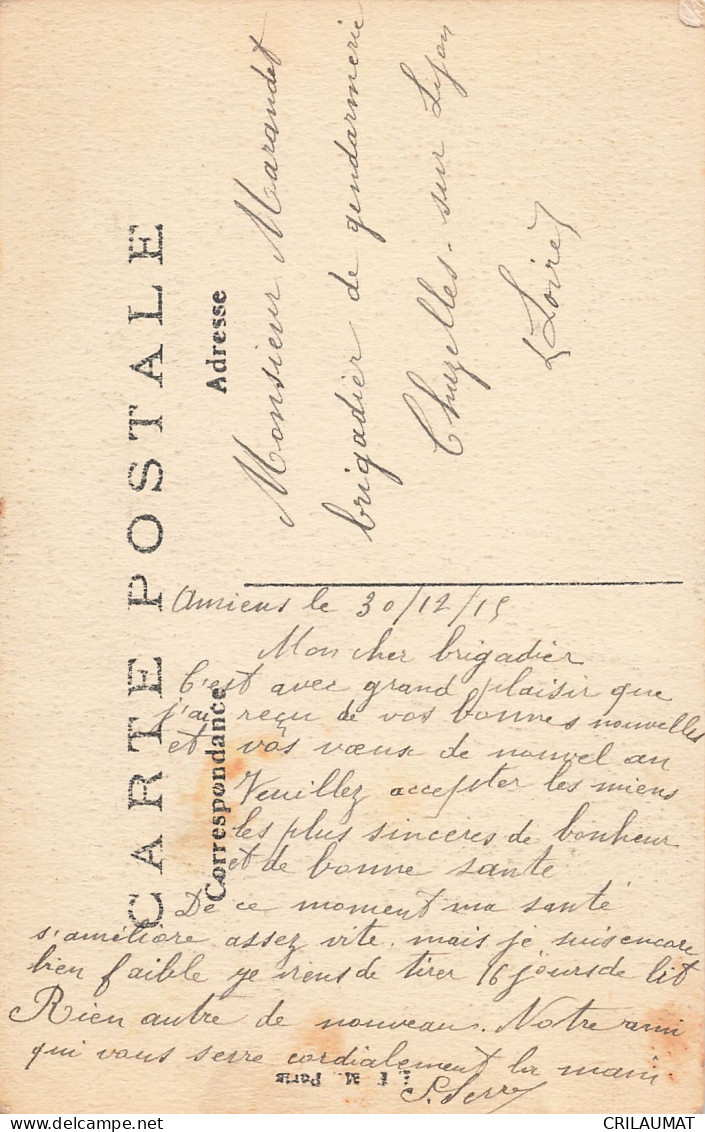 CARTE POSTALE
Correspondance
Adresse
Monsieur Marandet
brigadier de gendarmerie
Chazelles-sur Lyon
(Loire)
Amiens le 30/12/15
Mon cher brigadier
C'est avec grand plaisir que
j'ai reçu de vos bonnes nouvelles
et vos vœux de nouvel an
Veuillez accepter les miens
les plus sinceres de bonheur
et de bonne santé
De ce moment ma santé
s'améliore assez vite. mais je suis encore
bien faible je viens de tirer 16 jours de lit
Rien autre de nouveau. Notre ami
qui vous serre cordialement la main.
S. Serre
M. Paris
CRILAUMAT